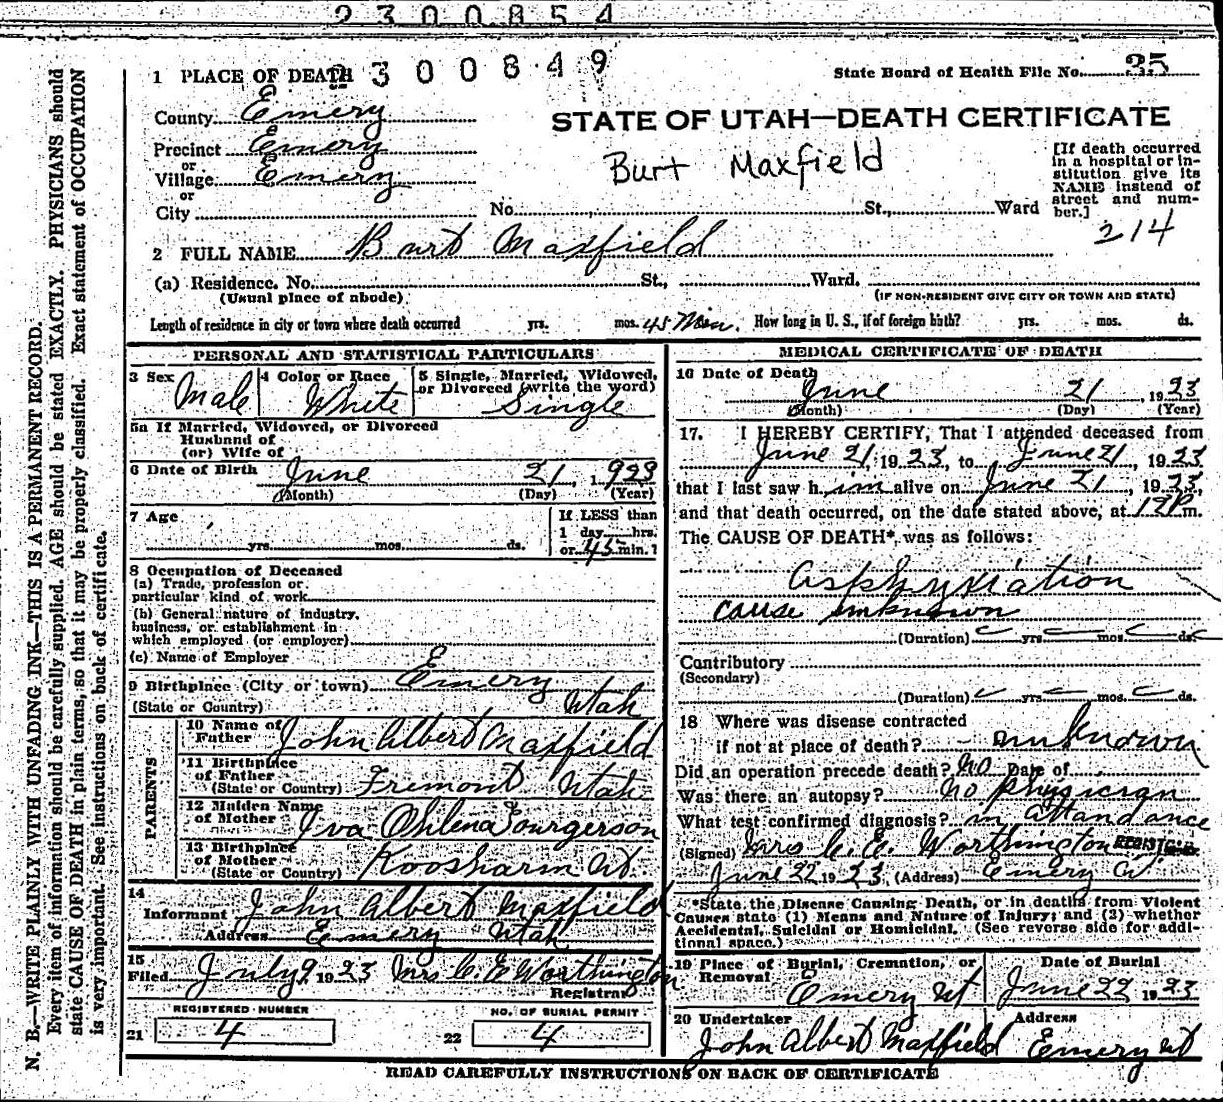 2300854
2300849
1 PLACE OF DEATH
State Board of Health File No. 35
County Emery
STATE OF UTAH—DEATH CERTIFICATE
Precinct Emery
or
Village Emery
or
City
Burt Maxfield
[If death occurred
in a hospital or in-
stitution give its
NAME instead of
street and num-
ber.]
No. St., Ward
214
2 FULL NAME Burt Maxfield
(a) Residence. No. St., Ward.
(Usual place of abode)
(IF NON-RESIDENT GIVE CITY OR TOWN AND STATE)
Length of residence in city or town where death occurred yrs. mos. 45 Min. How long in U. S., if of foreign birth? yrs. mos. ds.
PERSONAL AND STATISTICAL PARTICULARS
3 Sex Male
4 Color or Race White
5 Single, Married, Widowed,
or Divorced (write the word)
Single
5a If Married, Widowed, or Divorced
Husband of
(or) Wife of
6 Date of Birth June 21, 1923
(Month) (Day) (Year)
7 Age
yrs. mos. ds.
If LESS than
1 day hrs.
or 45 min.?
8 Occupation of Deceased
(a) Trade, profession or
particular kind of work
(b) General nature of industry,
business, or establishment in
which employed (or employer)
(c) Name of Employer
9 Birthplace (City or town) Emery
(State or Country) Utah
PARENTS
10 Name of
Father John Albert Maxfield
11 Birthplace
of Father
(State or Country) Fremont Utah
12 Maiden Name
of Mother Iva
13 Birthplace
of Mother
(State or Country) Koosharm Ut.
14
Informant John Albert Maxfield
Address Emery Utah
15
Filed July 9, 1923 Mrs C. E. Worthington
Registrar
REGISTERED NUMBER
21 4
NO. OF BURIAL PERMIT
22 4
MEDICAL CERTIFICATE OF DEATH
16 Date of Death
June 21, 1923
(Month) (Day) (Year)
17. I HEREBY CERTIFY, That I attended deceased from
June 21, 1923, to June 21, 1923
that I last saw him alive on June 21, 1923,
and that death occurred, on the date stated above, at 12 P m.
The CAUSE OF DEATH* was as follows:
asphyxiation
cause unknown
(Duration) yrs. mos. ds.
Contributory
(Secondary)
(Duration) yrs. mos. ds.
18 Where was disease contracted
if not at place of death? unknown
Did an operation precede death? No Date of
Was there an autopsy? No physician
What test confirmed diagnosis? in attandance
(Signed) Mrs C. E. Worthington
June 22 1923, (Address) Emery
*State the Disease Causing Death, or in deaths from Violent
Causes state (1) Means and Nature of Injury; and (2) whether
Accidental, Suicidal or Homicidal. (See reverse side for addi-
tional space.)
19 Place of Burial, Cremation, or
Removal
Emery Ut
Date of Burial
June 22 1923
20 Undertaker
John Albert Maxfield
Address
Emery Ut
READ CAREFULLY INSTRUCTIONS ON BACK OF CERTIFICATE
N. B.—WRITE PLAINLY WITH UNFADING INK—THIS IS A PERMANENT RECORD.
Every item of information should be carefully supplied. AGE should be stated EXACTLY. PHYSICIANS should
state CAUSE OF DEATH in plain terms, so that it may be properly classified. Exact statement of OCCUPATION
is very important. See instructions on back of certificate.